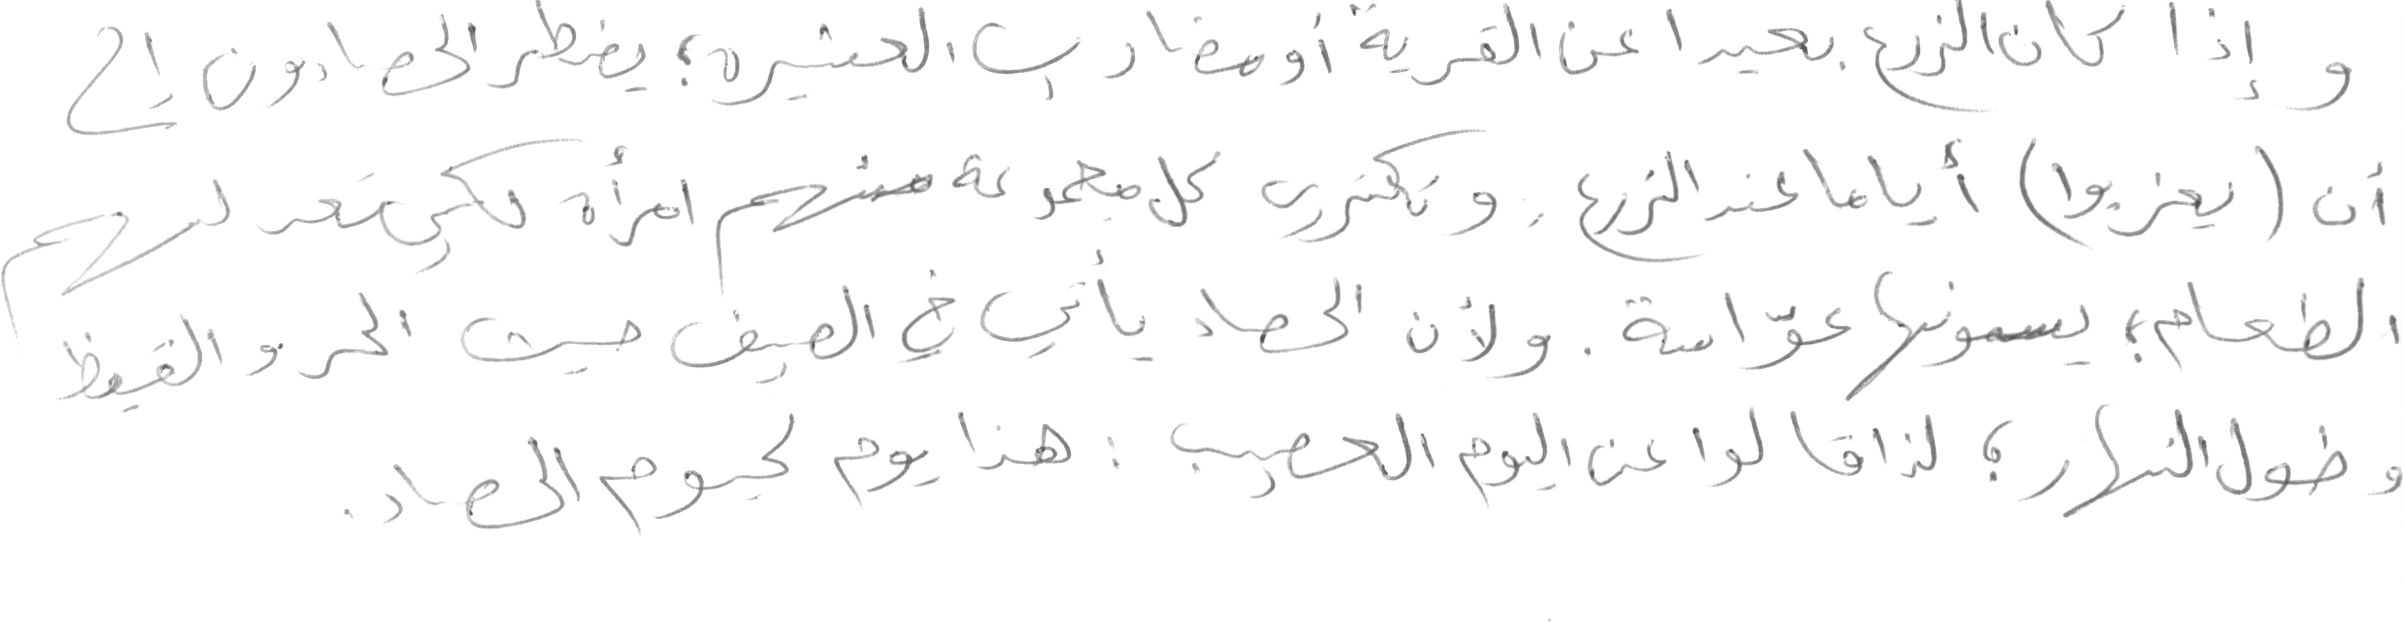 وإذا كان الزرع بعيدا عن القرية أو مضارب العشيره؛ يضطر الحصادون إلى
أن (يعزبوا) أياما عند الزرع. وتكتري كل مجموعة منهم امرأه لكي تعد لهم
الطعام؛ يسمونها عوّاسة. ولأن الحصاد يأتي في الصيف حيث الحر والقيظ
وطول النهار؛ لذا قالوا عن اليوم العصيب: هذا يوم كيوم الحصاد.